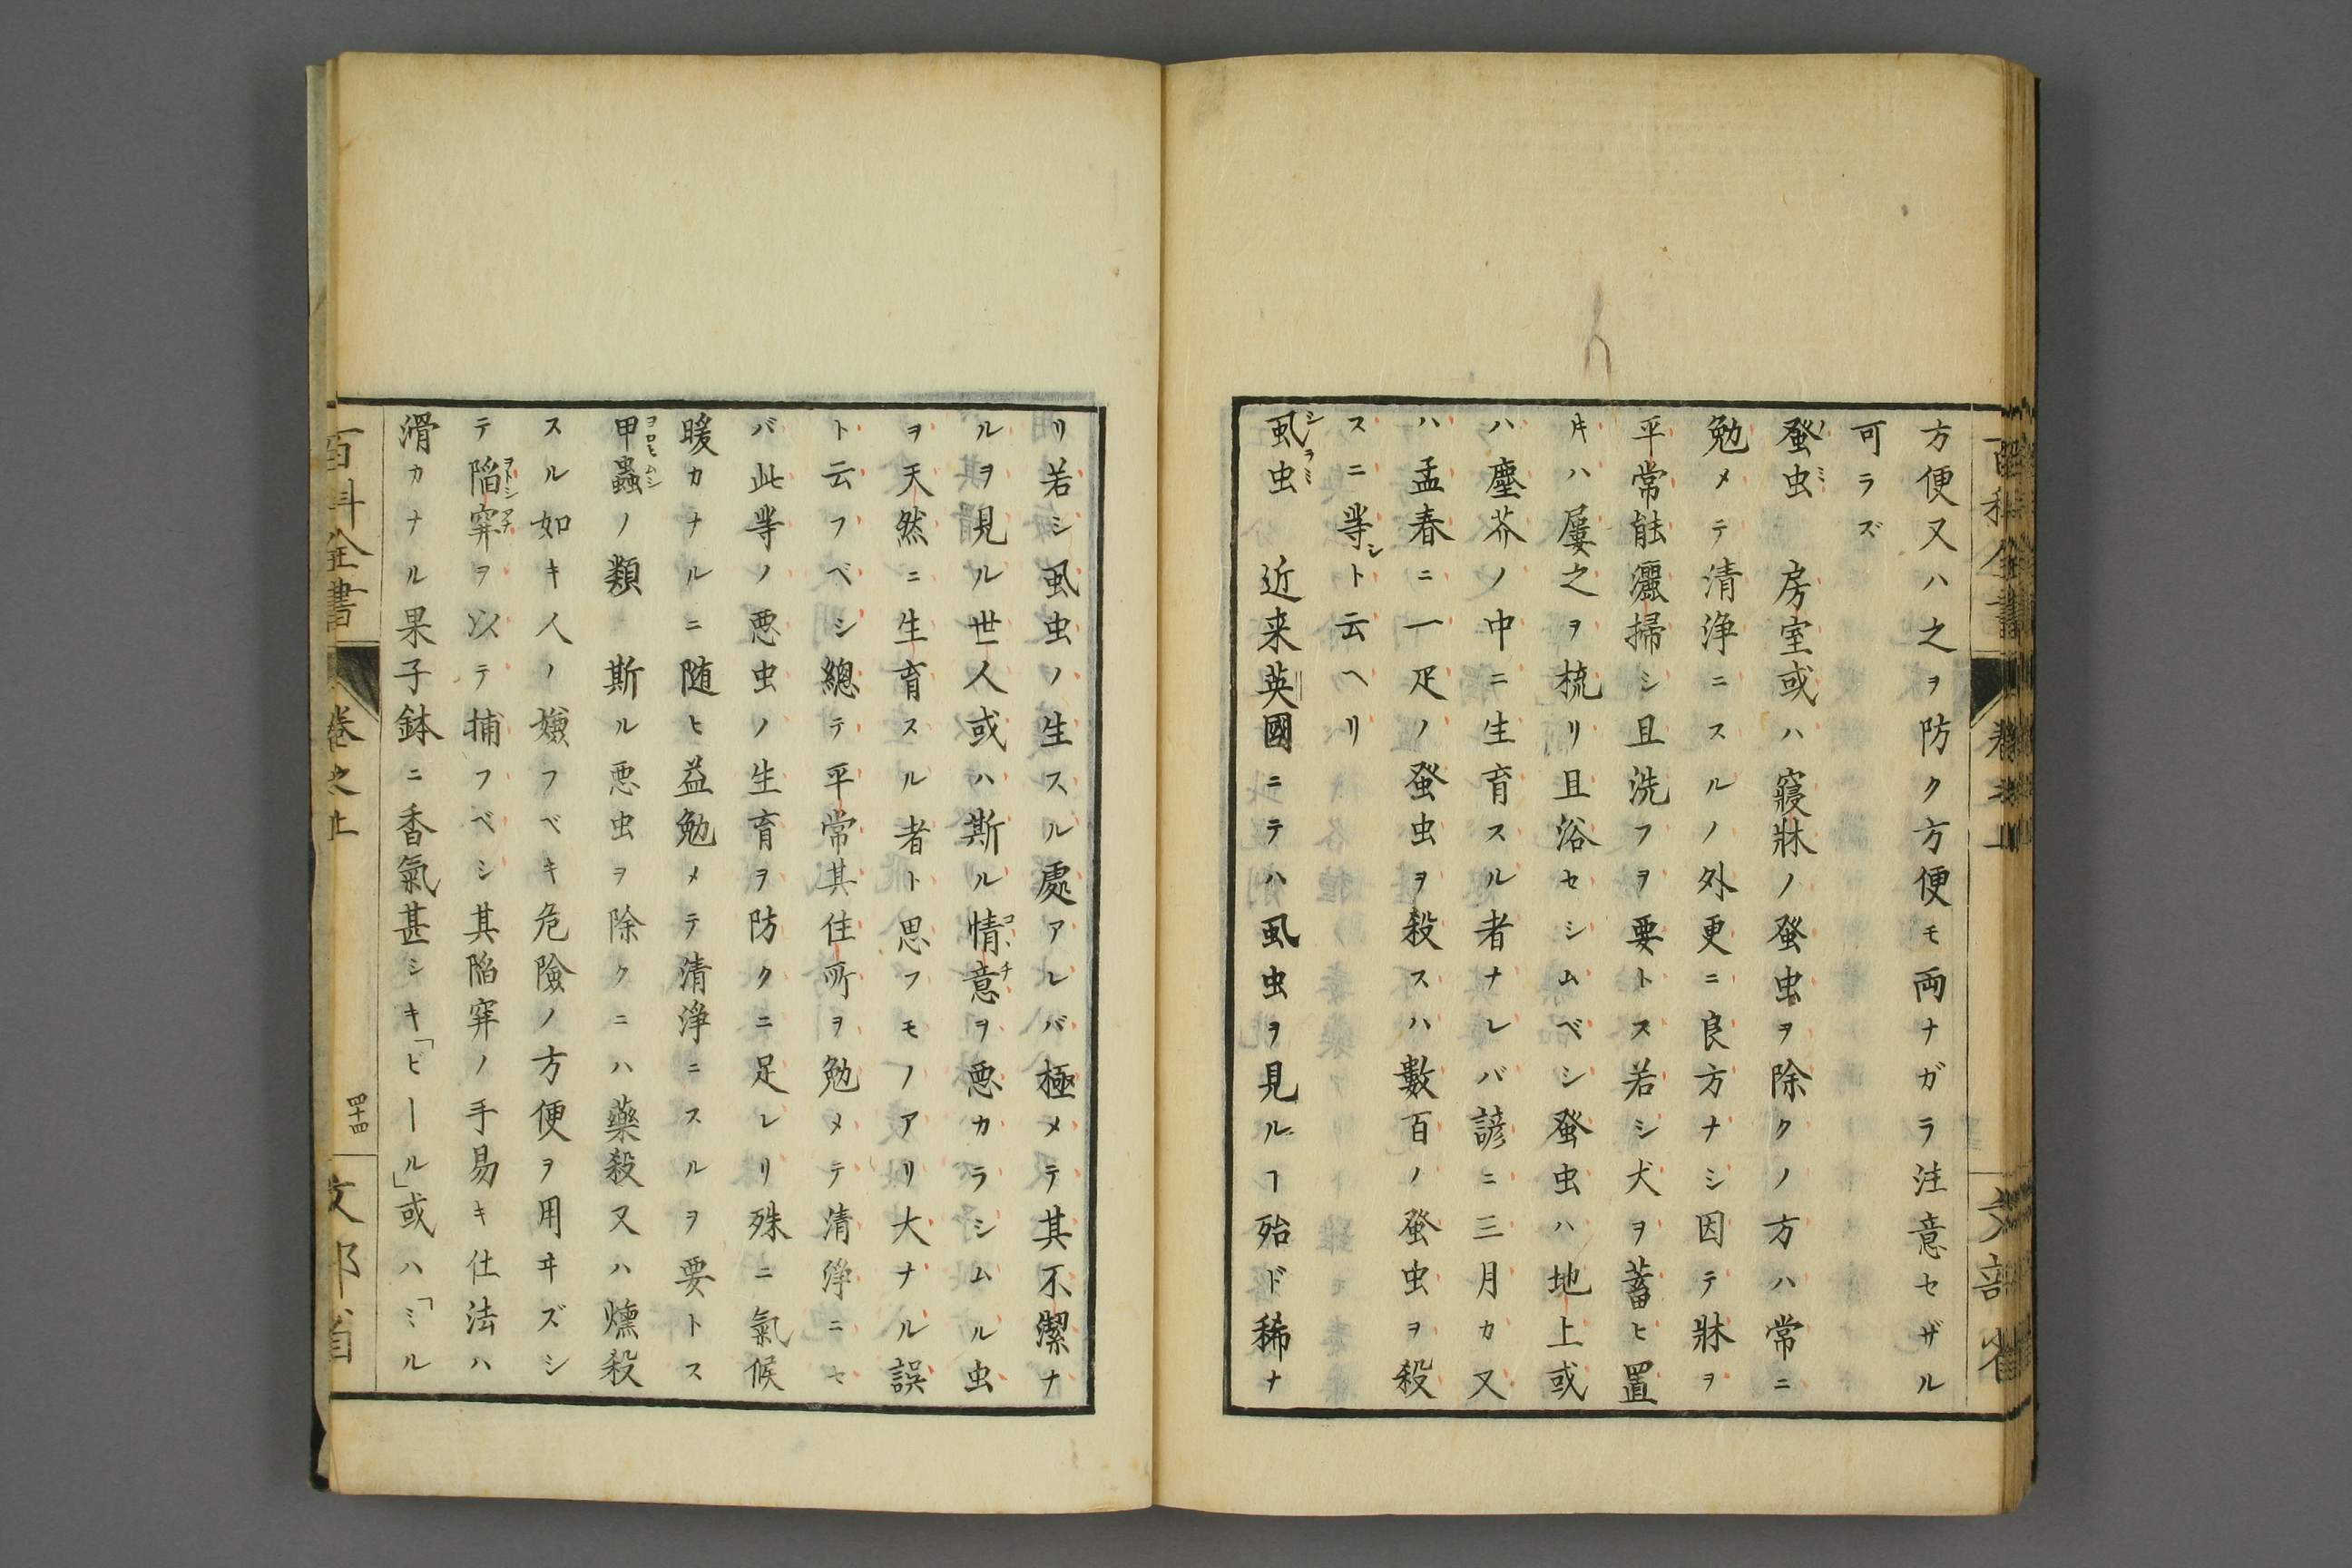 方便又ハ之ヲ防ク方便モ両ナガラ注意セザル
可ラズ
蚤虫　房室或ハ寢牀ノ蚤虫ヲ除クノ方ハ常ニ
勉メテ清浄ニスルノ外更ニ良方ナシ因テ牀ヲ
平常能灑掃シ且洗フヲ要トス若シ犬ヲ蓄ヒ置
キハ屢之ヲ梳リ且浴セシムベシ蚤虫ハ地上或
ハ塵芥ノ中ニ生育スル者ナレバ諺ニ三月カ又
ハ孟春ニ一疋ノ蚤虫ヲ殺スハ數百ノ蚤虫ヲ殺
スニ等シト云ヘリ
虱虫　近来英國ニテハ虱虫ヲ見ルヿ殆ド稀ナ
リ若シ虱虫ノ生スル處アレバ極メテ其不潔ナ
ルヲ見ル世人或ハ斯ル情意ヲ悪カラシムル虫
ヲ天然ニ生育スル者ト思フモノアリ大ナル誤
ト云フベシ總テ平常其住所ヲ勉メテ清浄ニセ
バ此等ノ悪虫ノ生育ヲ防クニ足レリ殊ニ氣候
暖カナルニ随ヒ益勉メテ清浄ニスルヲ要トス
甲蟲ノ類　斯ル悪虫ヲ除クニハ藥殺又ハ燻殺
スル如キ人ノ嫌フベキ危險ノ方便ヲ用ヰズシ
テ陥穽ヲ以テ捕フベシ其陥穽ノ手易キ仕法ハ
滑カナル果子鉢ニ香氣甚シキ「ビール」或ハ「ミル
百科全書
卷之上
四十四
文部省